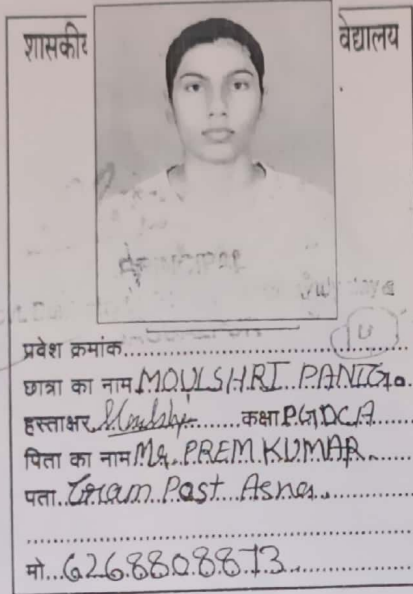 शासकीय वेद्यालय
PRINCIPAL
प्रवेश क्रमांक....................................
छात्रा का नाम MOULSHRI PANIGo.
हस्ताक्षर कक्षा PGDCA
पिता का नाम Mr. PREM KUMAR
पता. Gram Post Asne
मो...6268808873